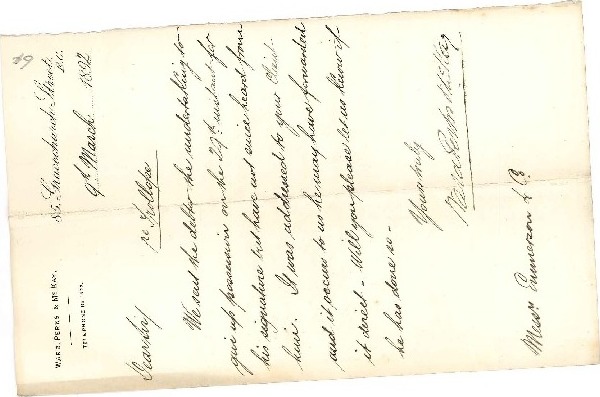 89
WARD, PERKS & McKAY.
TELEPHONE No.
85, Gracechurch Street,
E.C.
9th March 1892
Dear Sirs
re Trollope
We sent the debtor the undertaking to
give up possession on the 29th instant for
his signature but have not since heard from
him. It was addressed to your Client
and it occurs to us he may have forwarded
it direct - Will you please let us know if
he has done so -
Yours truly
Ward Perks & McKay
Messrs Emmerson & Co